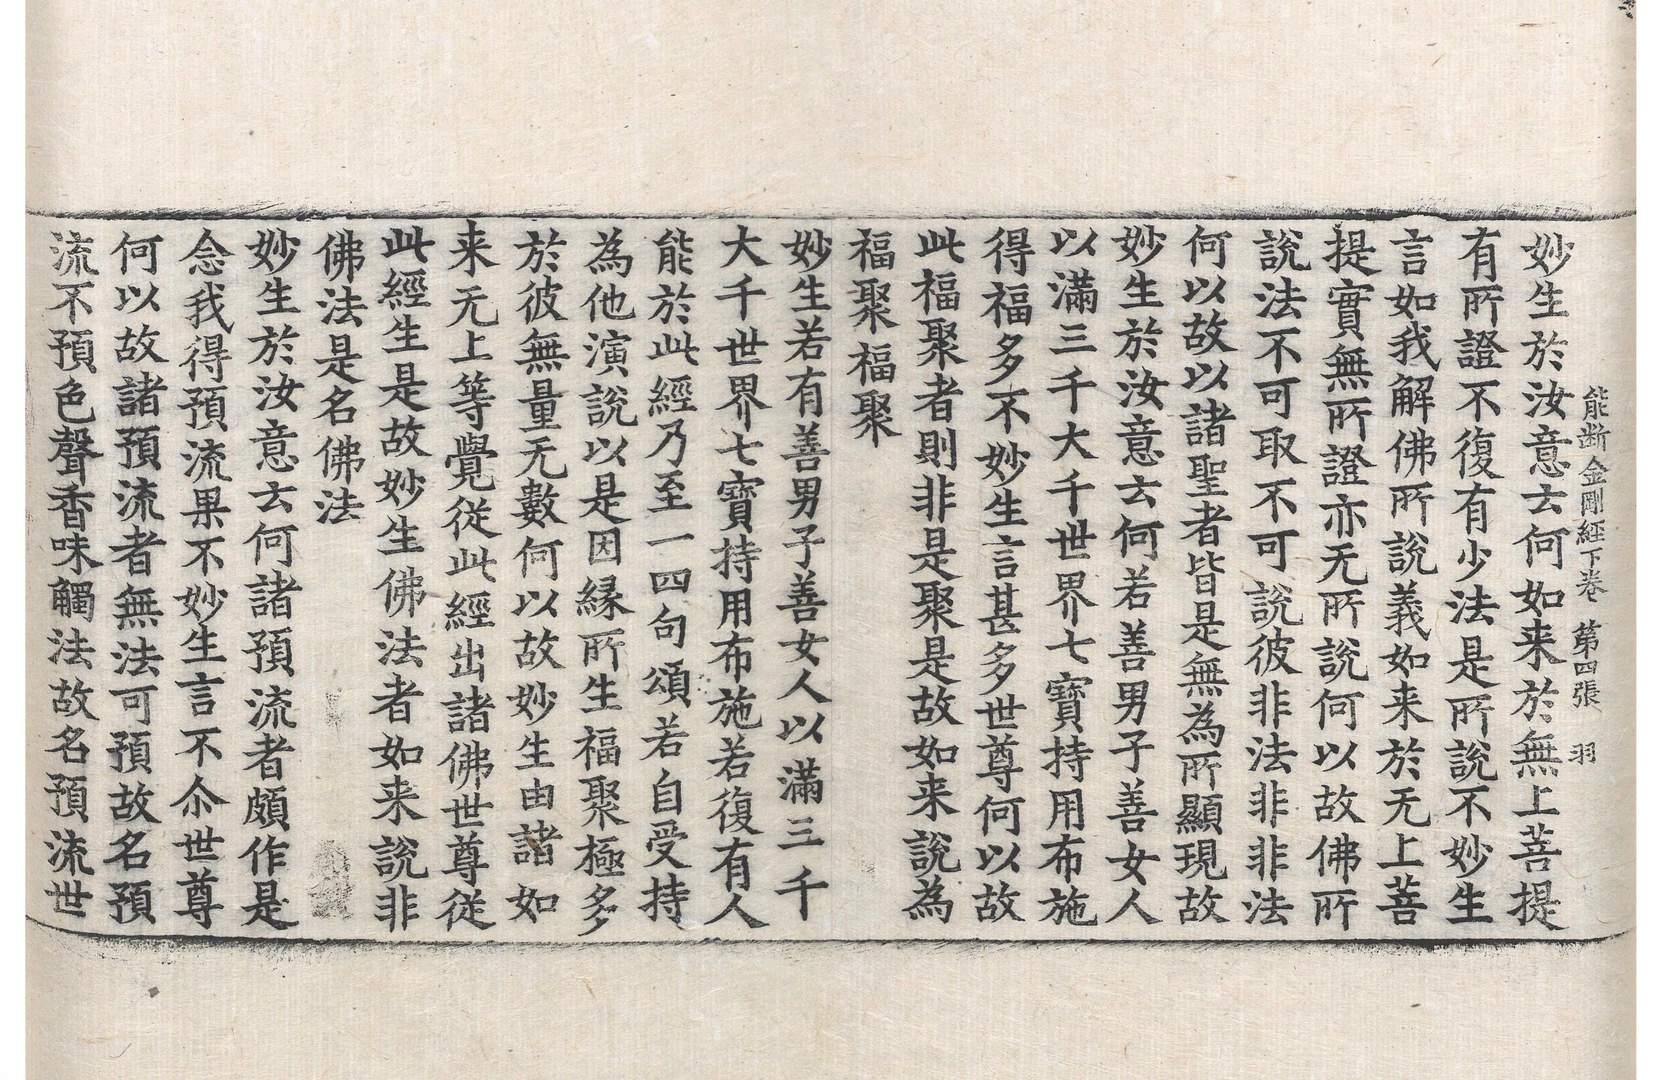 能断金剛經下卷 第四張 羽
妙生於汝意云何如来於無上菩提
有所證不復有少法是所說不妙生
言如我解佛所說義如来於无上菩
提實無所證亦无所說何以故佛所
說法不可取不可說彼非法非非法
何以故以諸聖者皆是無為所顯現故
妙生於汝意云何若善男子善女人
以滿三千大千世界七寶持用布施
得福多不妙生言甚多世尊何以故
此福聚者則非是聚是故如来說為
福聚福聚
妙生若有善男子善女人以滿三千
大千世界七寶持用布施若復有人
能於此經乃至一四句頌若自受持
為他演說以是因縁所生福聚極多
於彼無量无數何以故妙生由諸如
来无上等覺從此經出諸佛世尊從
此經生是故妙生佛法者如来說非
佛法是名佛法
妙生於汝意云何諸預流者頗作是
念我得預流果不妙生言不尒世尊
何以故諸預流者無法可預故名預
流不預色聲香味觸法故名預流世